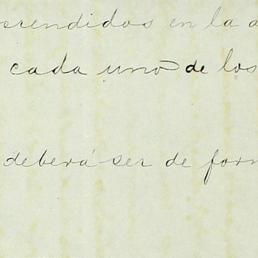 srendidos en la a
cada uno de los
deberá ser de for